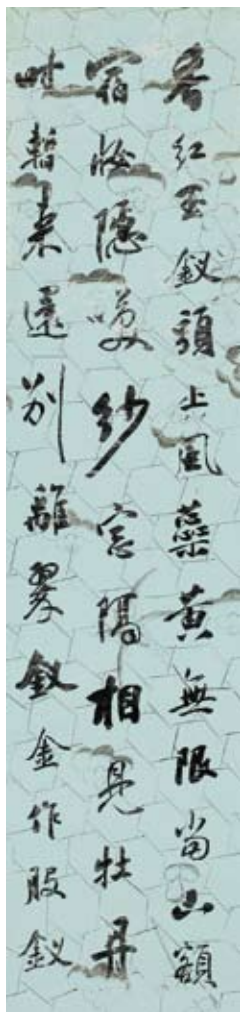 香紅玉釵頭上風蘂黃無限當山額
宿妝隱咲紗窓隔相見牡丹
時暫來還別離翠釵金作股釵